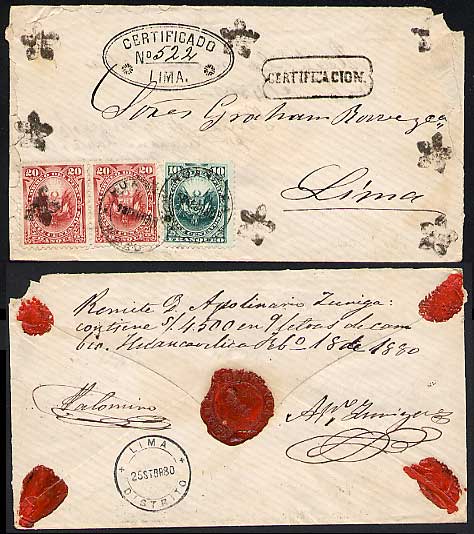 CERTIFICADO
No 522
LIMA.
CERTIFICACION.
Sores Graham Rowe y Ca
Lima
20 20 20 20 10 10
FRANQUEO FRANQUEO FRANQUEO
Remite D. Apolinario Zuniga:
contiene S/ 4500 en 9 letras de cam
bio. Huancavelica Feb 18 de 1880
Palomino
Apo Zuniga
LIMA
25 STBR 80
DISTRITO